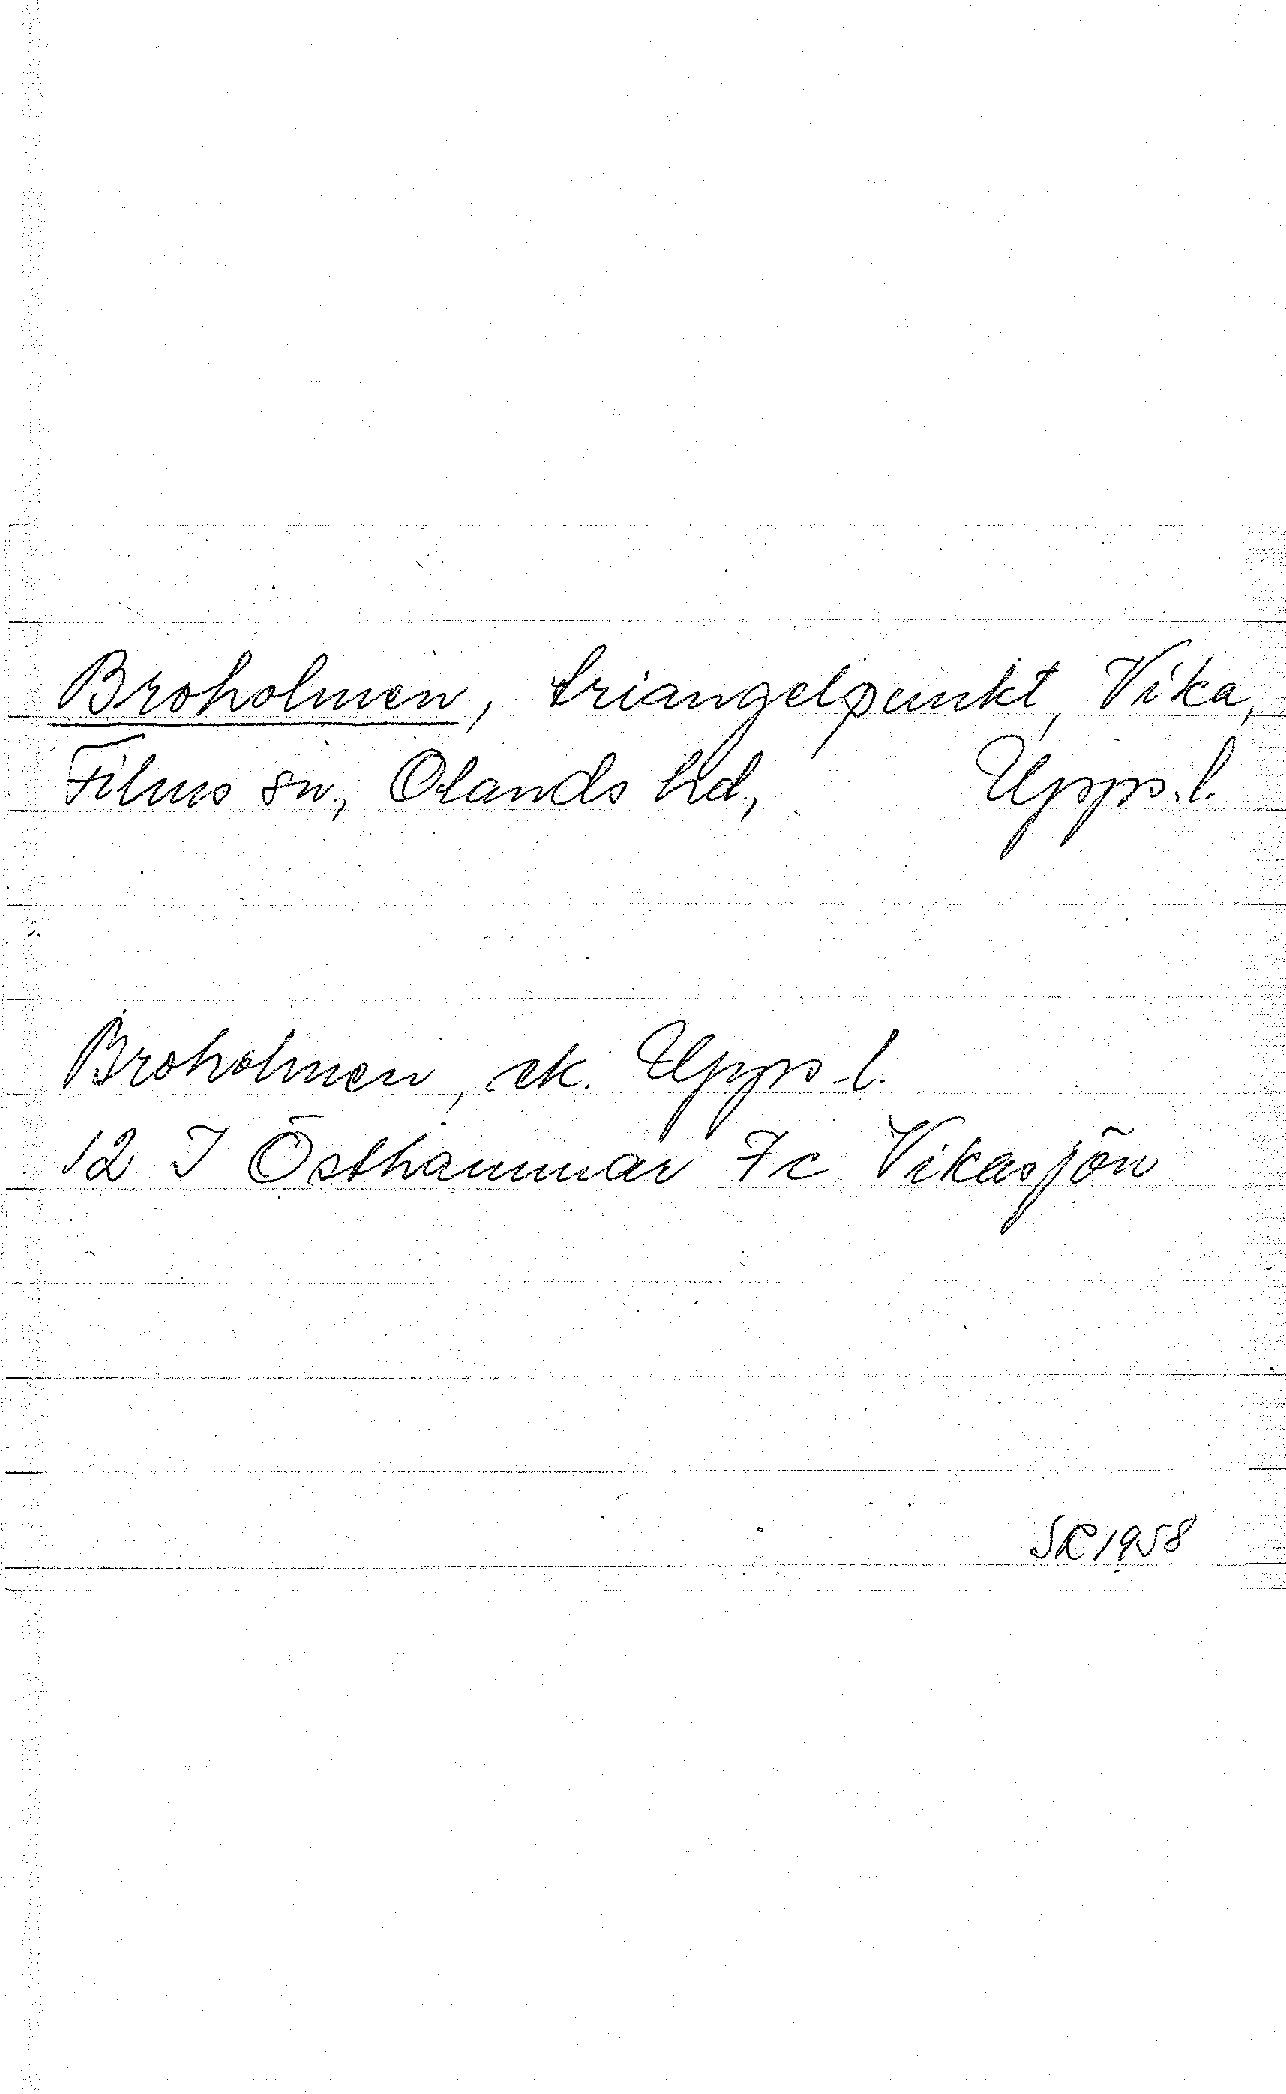 Broholmen, triangelpunkt, Vika,
Films sn, Olands hd, Upps. l.
Broholmen, ek. Upps l.
12 I Östhammar 7c Vikasjön
SK 1958